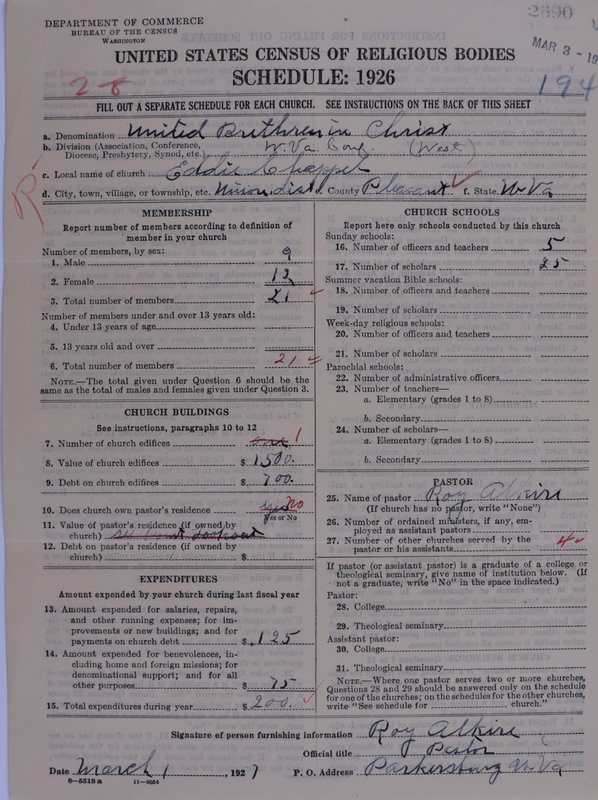 DEPARTMENT OF COMMERCE
BUREAU OF THE CENSUS
WASHINGTON
2890
MAR 3 - 19
UNITED STATES CENSUS OF RELIGIOUS BODIES
SCHEDULE: 1926
2-8
194
FILL OUT A SEPARATE SCHEDULE FOR EACH CHURCH. SEE INSTRUCTIONS ON THE BACK OF THIS SHEET
a. Denomination United Brethren in Christ
b. Division (Association, Conference, Diocese, Presbytery, Synod, etc.) W. Va Conf. (West)
c. Local name of church Eddie Chappel
d. City, town, village, or township, etc. Union, dist e. County Pleasant f. State W Va
R
MEMBERSHIP
Report number of members according to definition of
member in your church
Number of members, by sex:
1. Male 9
2. Female 12
3. Total number of members 21
Number of members under and over 13 years old:
4. Under 13 years of age
5. 13 years old and over
6. Total number of members 21
NOTE.—The total given under Question 6 should be the
same as the total of males and females given under Question 3.
CHURCH BUILDINGS
See instructions, paragraphs 10 to 12
7. Number of church edifices one 1
8. Value of church edifices $ 1500.
9. Debt on church edifices $ 700.
10. Does church own pastor's residence yes no
Yes or No
11. Value of pastor's residence (if owned by
church)
12. Debt on pastor's residence (if owned by
church) $
EXPENDITURES
Amount expended by your church during last fiscal year
13. Amount expended for salaries, repairs,
and other running expenses; for im-
provements or new buildings; and for
payments on church debt $ 125
14. Amount expended for benevolences, in-
cluding home and foreign missions; for
denominational support; and for all
other purposes $ 75
15. Total expenditures during year $ 200.
CHURCH SCHOOLS
Report here only schools conducted by this church
Sunday schools:
16. Number of officers and teachers 5
17. Number of scholars 25
Summer vacation Bible schools:
18. Number of officers and teachers
19. Number of scholars
Week-day religious schools:
20. Number of officers and teachers
21. Number of scholars
Parochial schools:
22. Number of administrative officers
23. Number of teachers—
a. Elementary (grades 1 to 8)
b. Secondary
24. Number of scholars—
a. Elementary (grades 1 to 8)
b. Secondary
PASTOR
25. Name of pastor Roy Alkire
(If church has no pastor, write "None")
26. Number of ordained ministers, if any, em-
ployed as assistant pastors
27. Number of other churches served by the
pastor or his assistants 4
If pastor (or assistant pastor) is a graduate of a college or
theological seminary, give name of institution below. (If
not a graduate, write "No" in the space indicated.)
Pastor:
28. College
29. Theological seminary
Assistant pastor:
30. College
31. Theological seminary
NOTE.—Where one pastor serves two or more churches,
Questions 28 and 29 should be answered only on the schedule
for one of the churches; on the schedules for the other churches,
write "See schedule for church."
Signature of person furnishing information Roy Alkire
Official title Pastor
Date March 1, 1927 P. O. Address Parkersburg W. Va
8—5518 a 11—9684